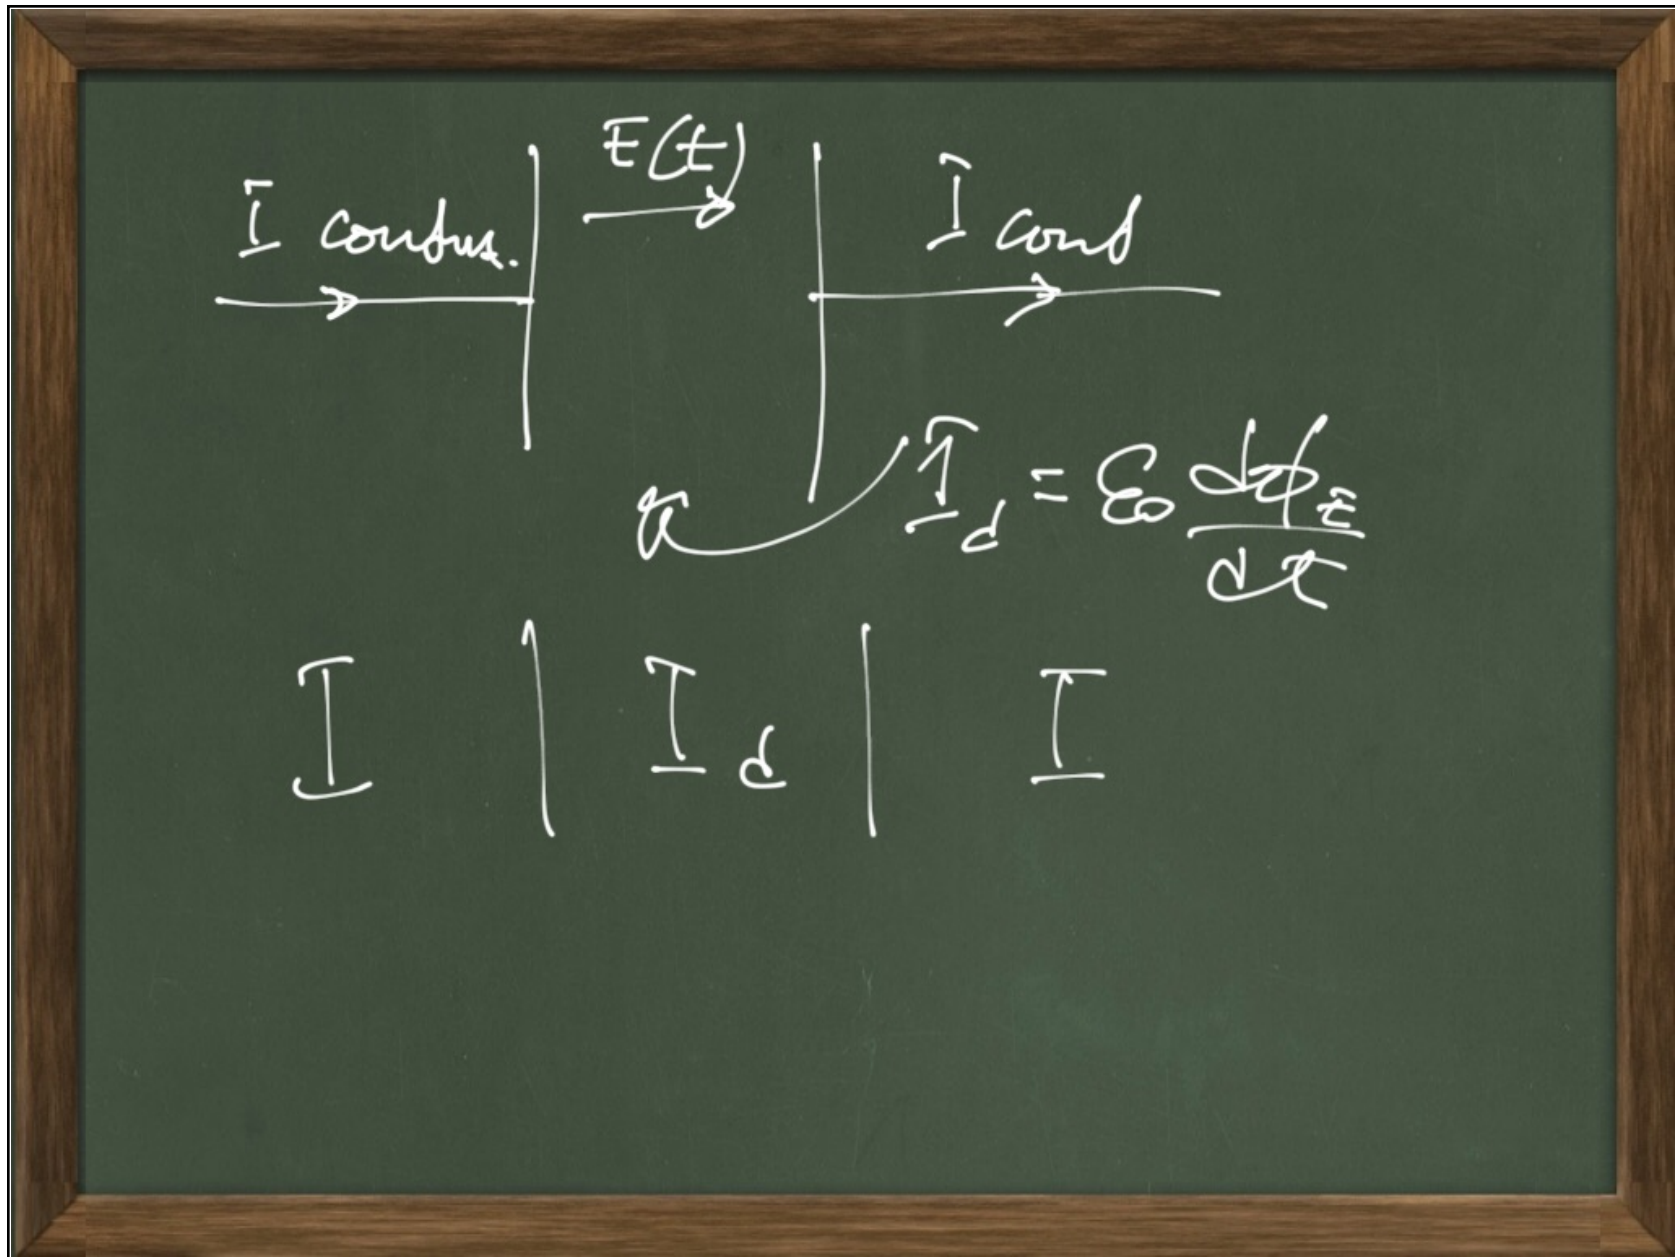 E(t)
I conduz. I cond
I_d = ε₀ dϕ_E/dt
I | I_d | I